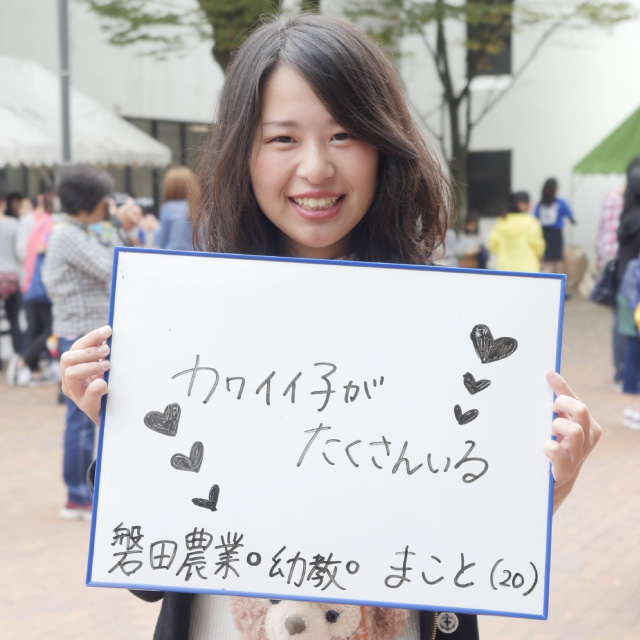 カワイイ子が
たくさんいる
磐田農業。幼教。 まこと(20)